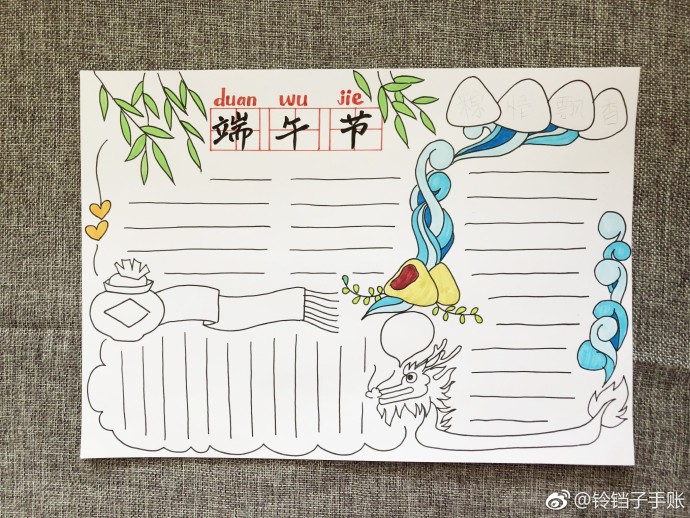 duan wu jie
端午节
粽 情 飘 香
@铃铛子手账